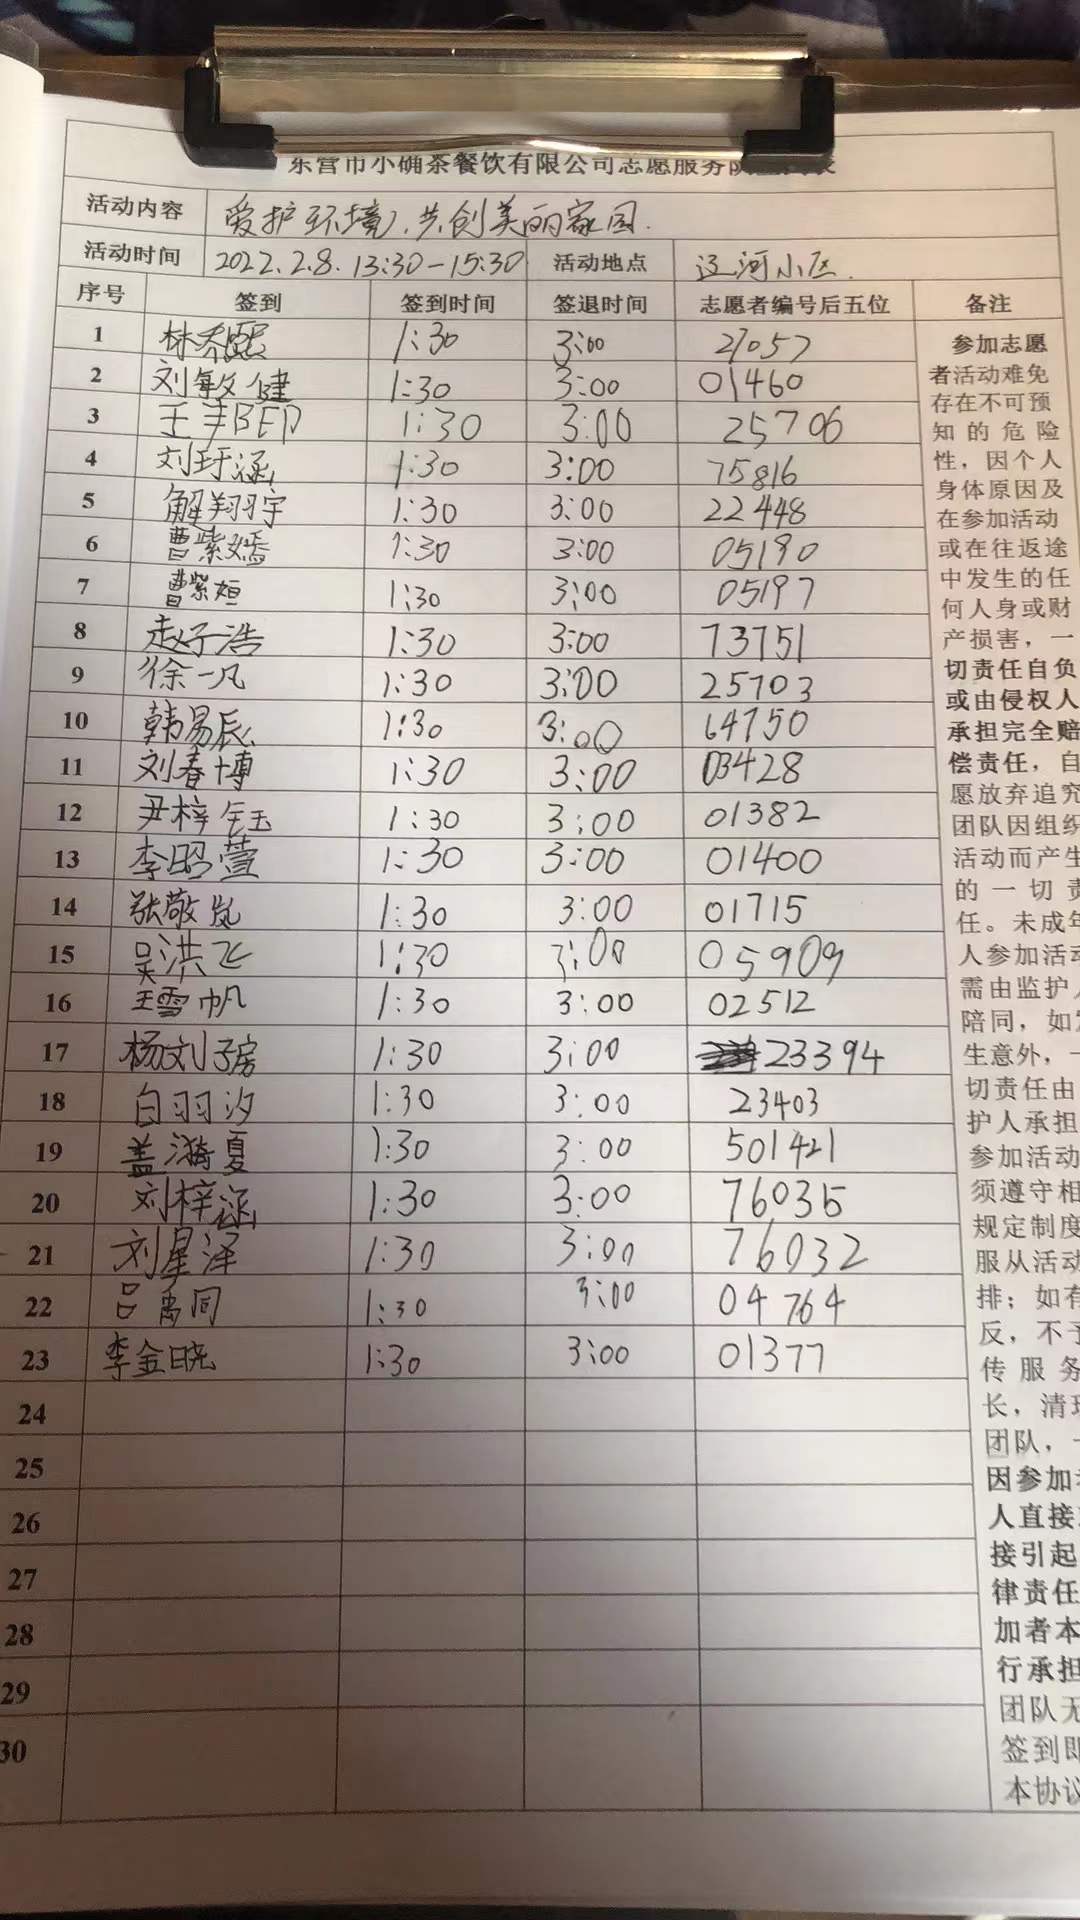 东营市小确茶餐饮有限公司志愿服务队
活动内容 爱护环境,共创美丽家园.
活动时间 2022.2.8. 13:30-15:30 活动地点 辽河小区.
序号 签到 签到时间 签退时间 志愿者编号后五位 备注
1 林乔熙 1:30 3:00 27057
2 刘敏健 1:30 3:00 01460
3 王 1:30 3:00 25706
4 刘玗涵 1:30 3:00 75816
5 解翔宇 1:30 3:00 22448
6 曹紫嫣 1:30 3:00 05190
7 曹紫姮 1:30 3:00 05197
8 赵子浩 1:30 3:00 73751
9 徐一凡 1:30 3:00 25703
10 韩易辰 1:30 3:00 64750
11 刘春博 1:30 3:00 03428
12 尹梓钰 1:30 3:00 01382
13 李昭萱 1:30 3:00 01400
14 张敬岚 1:30 3:00 01715
15 吴洪飞 1:30 3:00 05909
16 王雪帆 1:30 3:00 02512
17 杨刘子房 1:30 3:00 23394
18 白羽汐 1:30 3:00 23403
19 盖漪夏 1:30 3:00 501421
20 刘梓涵 1:30 3:00 76035
21 刘星泽 1:30 3:00 76032
22 吕禹同 1:30 3:00 04764
23 李金晓 1:30 3:00 01377
24
25
26
27
28
29
30
参加志愿
者活动难免
存在不可预
知的危险
性，因个人
身体原因及
在参加活动
或在往返途
中发生的任
何人身或财
产损害，一
切责任自负
或由侵权人
承担完全赔
偿责任，自
愿放弃追究
团队因组织
活动而产生
的一切责
任。未成年
人参加活动
需由监护人
陪同，如
生意外，一
切责任由
护人承担
参加活动
须遵守相
规定制度
服从活动
排；如有
反，不予
传服务
长，清理
团队，
因参加
人直接
接引起
律责任
加者本
行承担
团队无
签到即
本协议